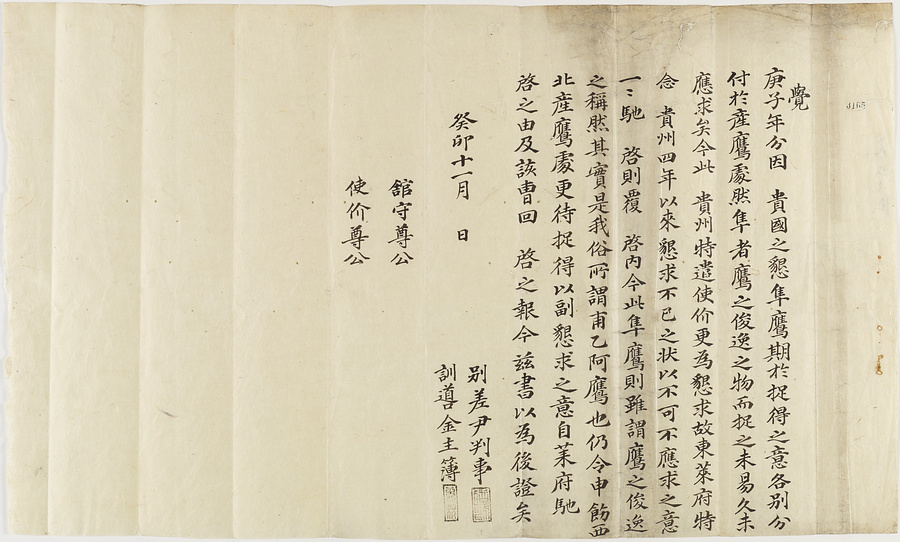 覺
庚子年分因 貴國之懇隼鷹期於捉得之意各別分
付於產鷹處然隼者鷹之俊逸之物而捉之未易久未
應求矣今此 貴州特遣使价更為懇求故東萊府特
念 貴州四年以來懇求不已之状以不可不應求之意
一〻馳 啓則覆 啓內今此隼鷹則雖謂鷹之俊逸
之稱然其實是我俗所謂甫乙阿鷹也仍令申飭西
北產鷹處更待捉得以副懇求之意自萊府馳
啓之由及該曺回 啓之報今茲書以為後證矣
癸卯十一月 日
別差尹判事
訓導金主簿
館守尊公
使价尊公